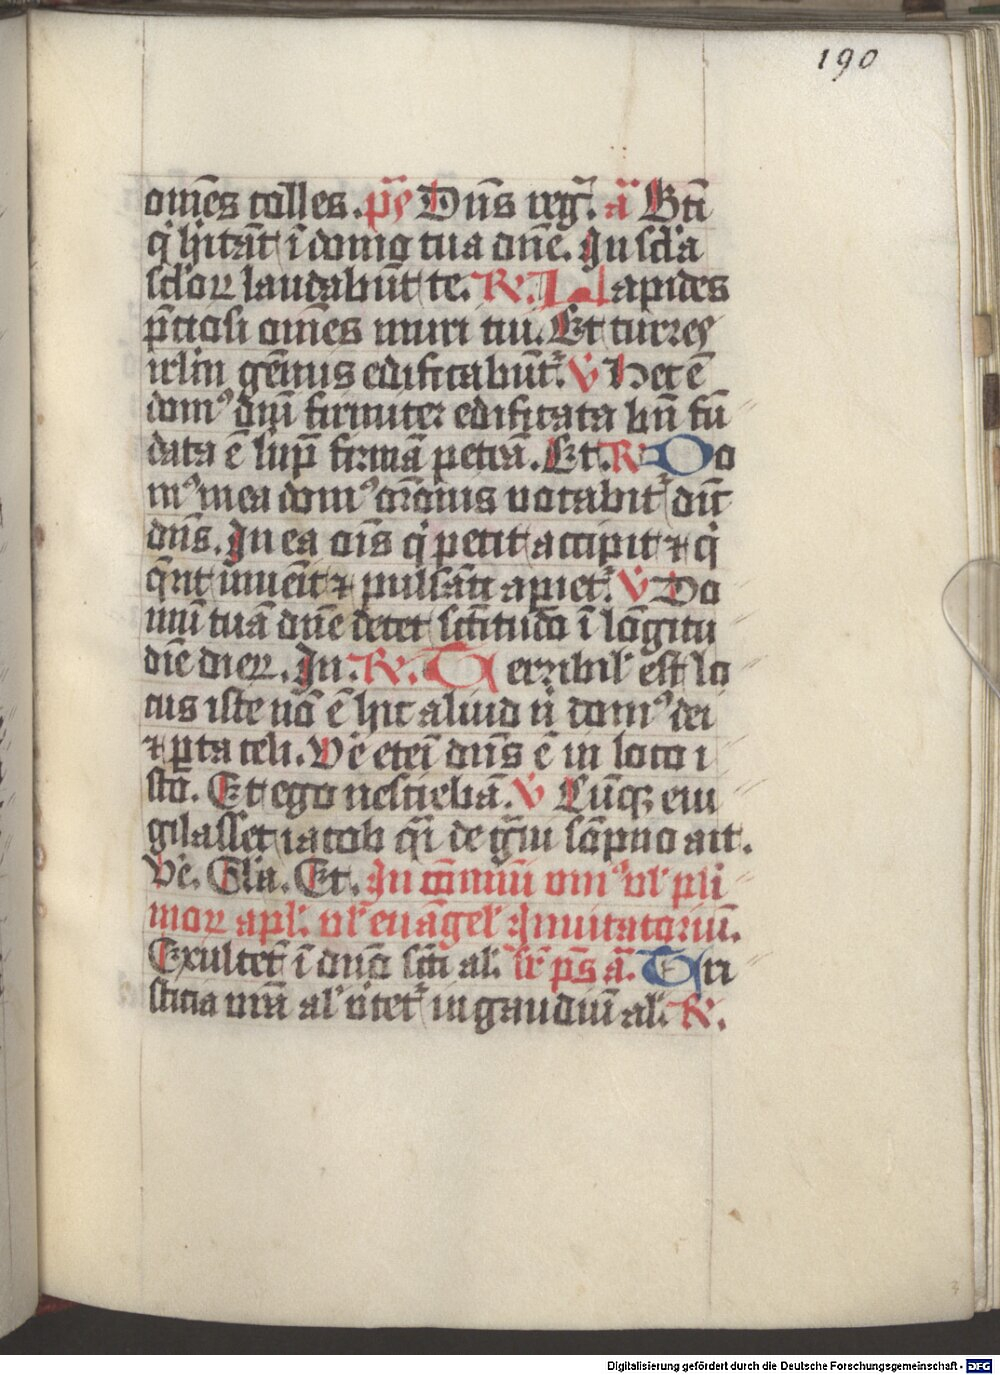 190
om̄es colles. ps̄ Dn̄s reḡ. a̅ Bt̄i
q̇ hītāt ī domo tua dn̄e. In scl'a
scl'oꝝ laudabūt te. R. Lapides
p̄ciosi om̄es muri tui. Et turres
irl'm gēmis edificabūt᷑. V Hec ē
domꝰ dn̄i firmiter edificata bn̄ fū
data ē sup̄ firmā petrā. Et. R Do
mꝰ mea domꝰ or̄onis vocabit᷑ dīt
dn̄s. In ea oīs q̇ petit accipit ⁊ q̇
q̄rit inuēit ⁊ pulsāti apiet᷑. V Do
mū tuā dn̄e decet sc̄titudo ī lōgitu
dīe dieꝝ. In. R. Terribil' est lo
cus iste nō ē hic aliud n̄ domꝰ dei
⁊ ꝑta celi. Ve etei dn̄s ē in loco i
sto. Et ego nesciebā. V Cūqꝫ eui
gilasset iacob q̄i de g̊ui sōpno ait.
Ve. Gl'a. Et. In cōmuni oīm ul' pl'i
moꝝ apl'. ul' euāgel'. Inuitatoriū.
Exultet᷑ ī dn̄o sc̄ti al'. sr̄ ps̄ a̅. Tri
sticia vr̄a al' v̇tet᷑ in gaudiū al'. R.
Digitalisierung gefördert durch die Deutsche Forschungsgemeinschaft - DFG